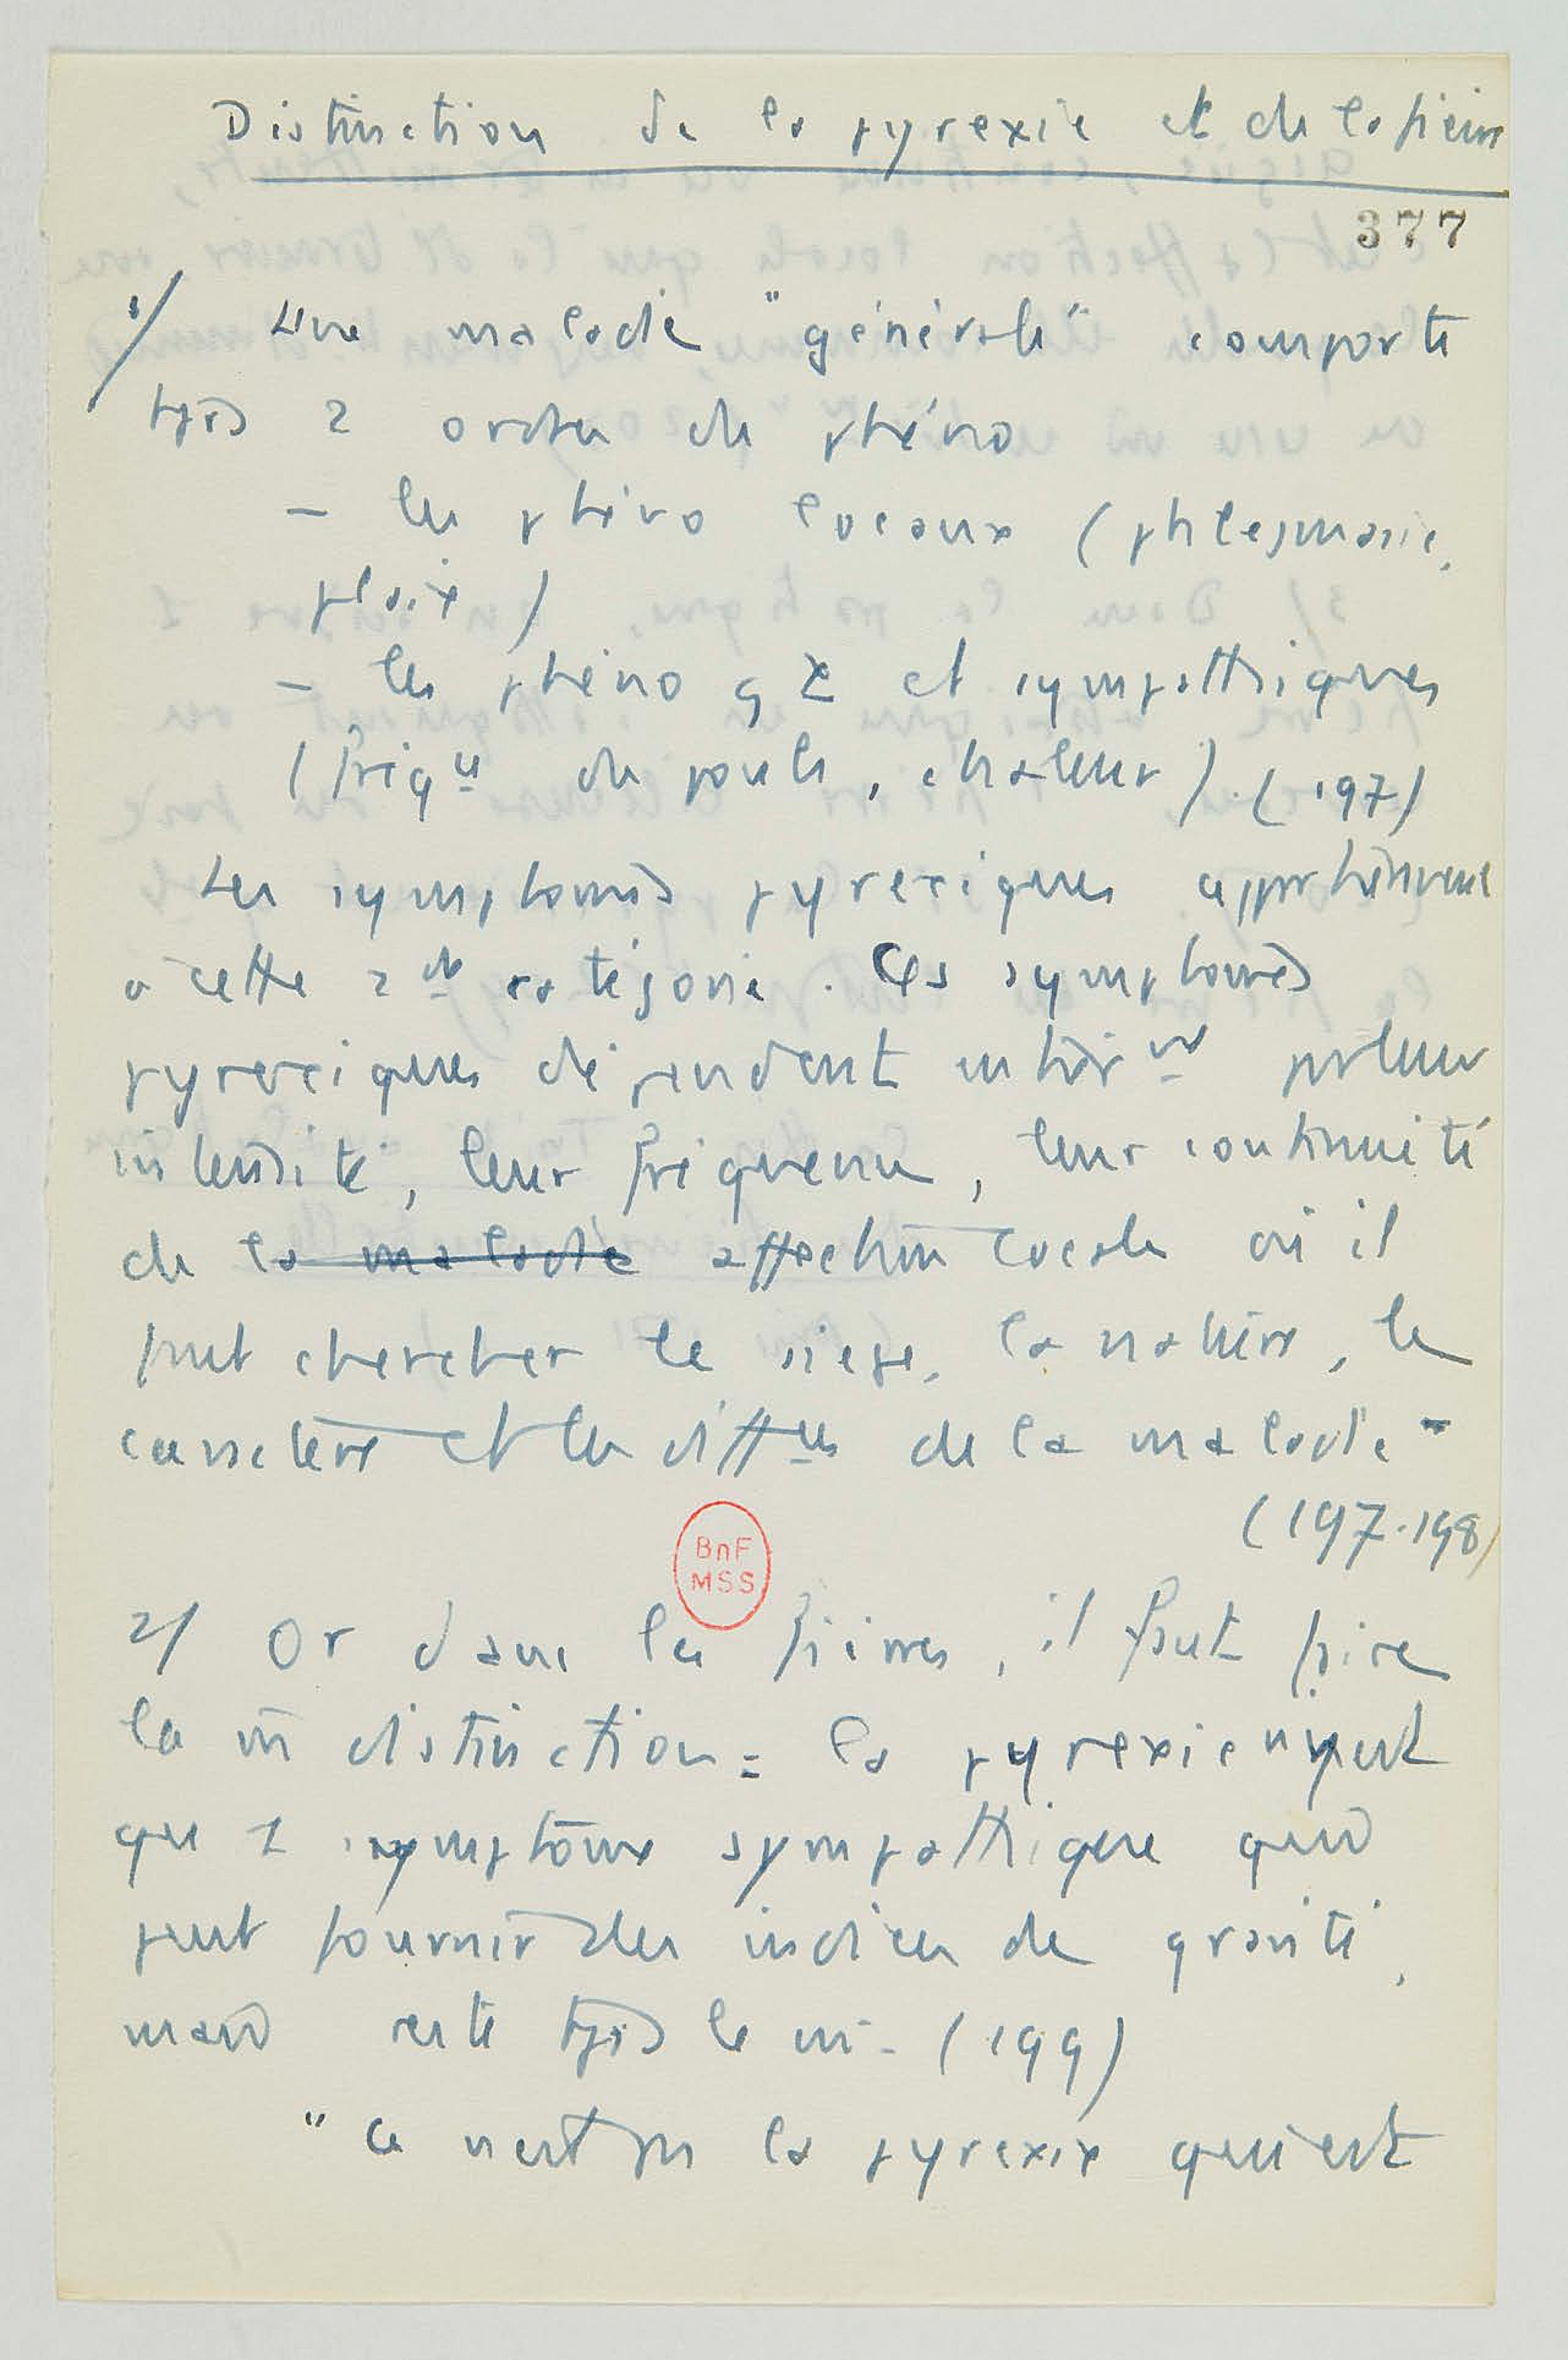 Distinction de la pyrexie et de la fièvre
377
1/ Une maladie "générale" comporte
tjrs 2 ordres de phéno
– les phéno locaux (phlegmasie,
plaie)
– les phéno gx et sympathiques
(fréqu du pouls, chaleur). (197)
Les symptomes pyrexiques appartiennent
à cette 2de catégorie. Ces symptomes
pyrexiques dépendent entièrnt par leur
intensité, leur fréquence, leur continuité
de la maladie affection locale où il
faut chercher le siège, la nature, le
caractère et les diffces de la maladie"
(197-198)
BnF
MSS
2/ Or dans les fièvres, il faut faire
la m̂ distinction : la pyrexie n'est
que 1 symptôme sympathique qui
peut fournir des indices de gravité,
mais reste tjrs le m̂. (199)
"Ce n'est pas la pyrexie qui est